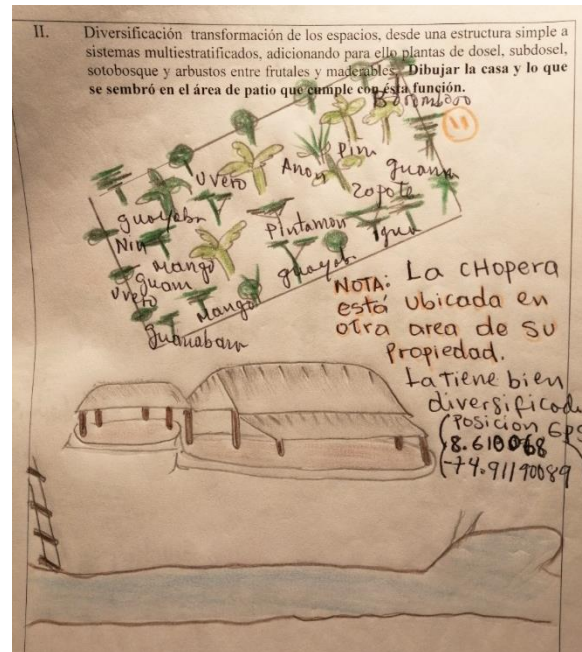 II. Diversificación transformación de los espacios, desde una estructura simple a
sistemas multiestratificados, adicionando para ello plantas de dosel, subdosel,
sotobosque y arbustos entre frutales y maderables. Dibujar la casa y lo que
se sembró en el área de patio que cumple con ésta función.
Borombolo
11
Uvero
Anon
Pini
guama
Zopote
guayaba
Pintamon
Igua
Nin
Mango
guam
guayab
Uvero
Mango
Guanabana
NOTA: La CHopera
está ubicada en
otra area de su
Propiedad.
La tiene bien
diversificada
(Posición GPS
8.610068
-74.91190089